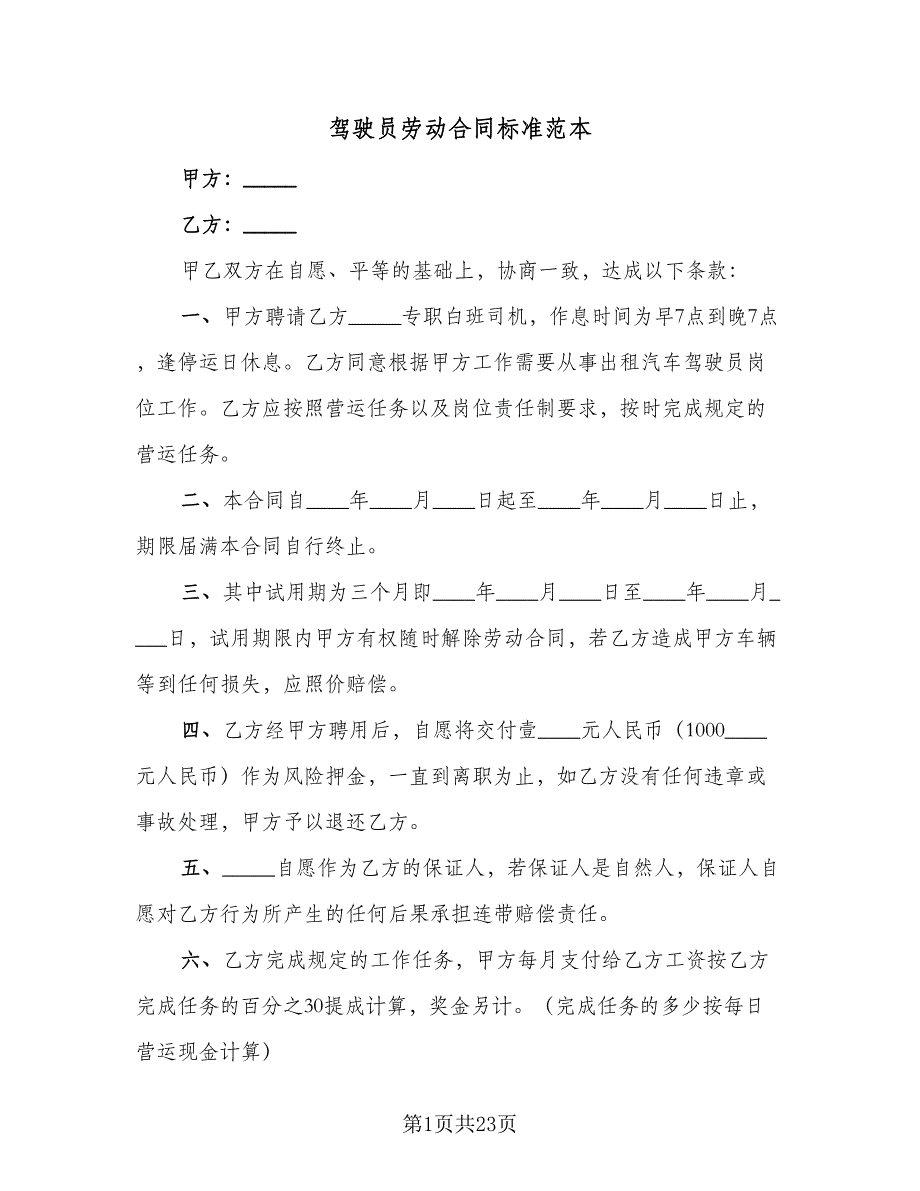 驾驶员劳动合同标准范本
甲方：_____
乙方：_____
甲乙双方在自愿、平等的基础上，协商一致，达成以下条款：
一、甲方聘请乙方_____专职白班司机，作息时间为早7点到晚7点
，逢停运日休息。乙方同意根据甲方工作需要从事出租汽车驾驶员岗
位工作。乙方应按照营运任务以及岗位责任制要求，按时完成规定的
营运任务。
二、本合同自____年____月____日起至____年____月____日止，
期限届满本合同自行终止。
三、其中试用期为三个月即____年____月____日至____年____月_
___日，试用期限内甲方有权随时解除劳动合同，若乙方造成甲方车辆
等到任何损失，应照价赔偿。
四、乙方经甲方聘用后，自愿将交付壹____元人民币（1000____
元人民币）作为风险押金，一直到离职为止，如乙方没有任何违章或
事故处理，甲方予以退还乙方。
五、_____自愿作为乙方的保证人，若保证人是自然人，保证人自
愿对乙方行为所产生的任何后果承担连带赔偿责任。
六、乙方完成规定的工作任务，甲方每月支付给乙方工资按乙方
完成任务的百分之30提成计算，奖金另计。（完成任务的多少按每日
营运现金计算）
第1页共23页